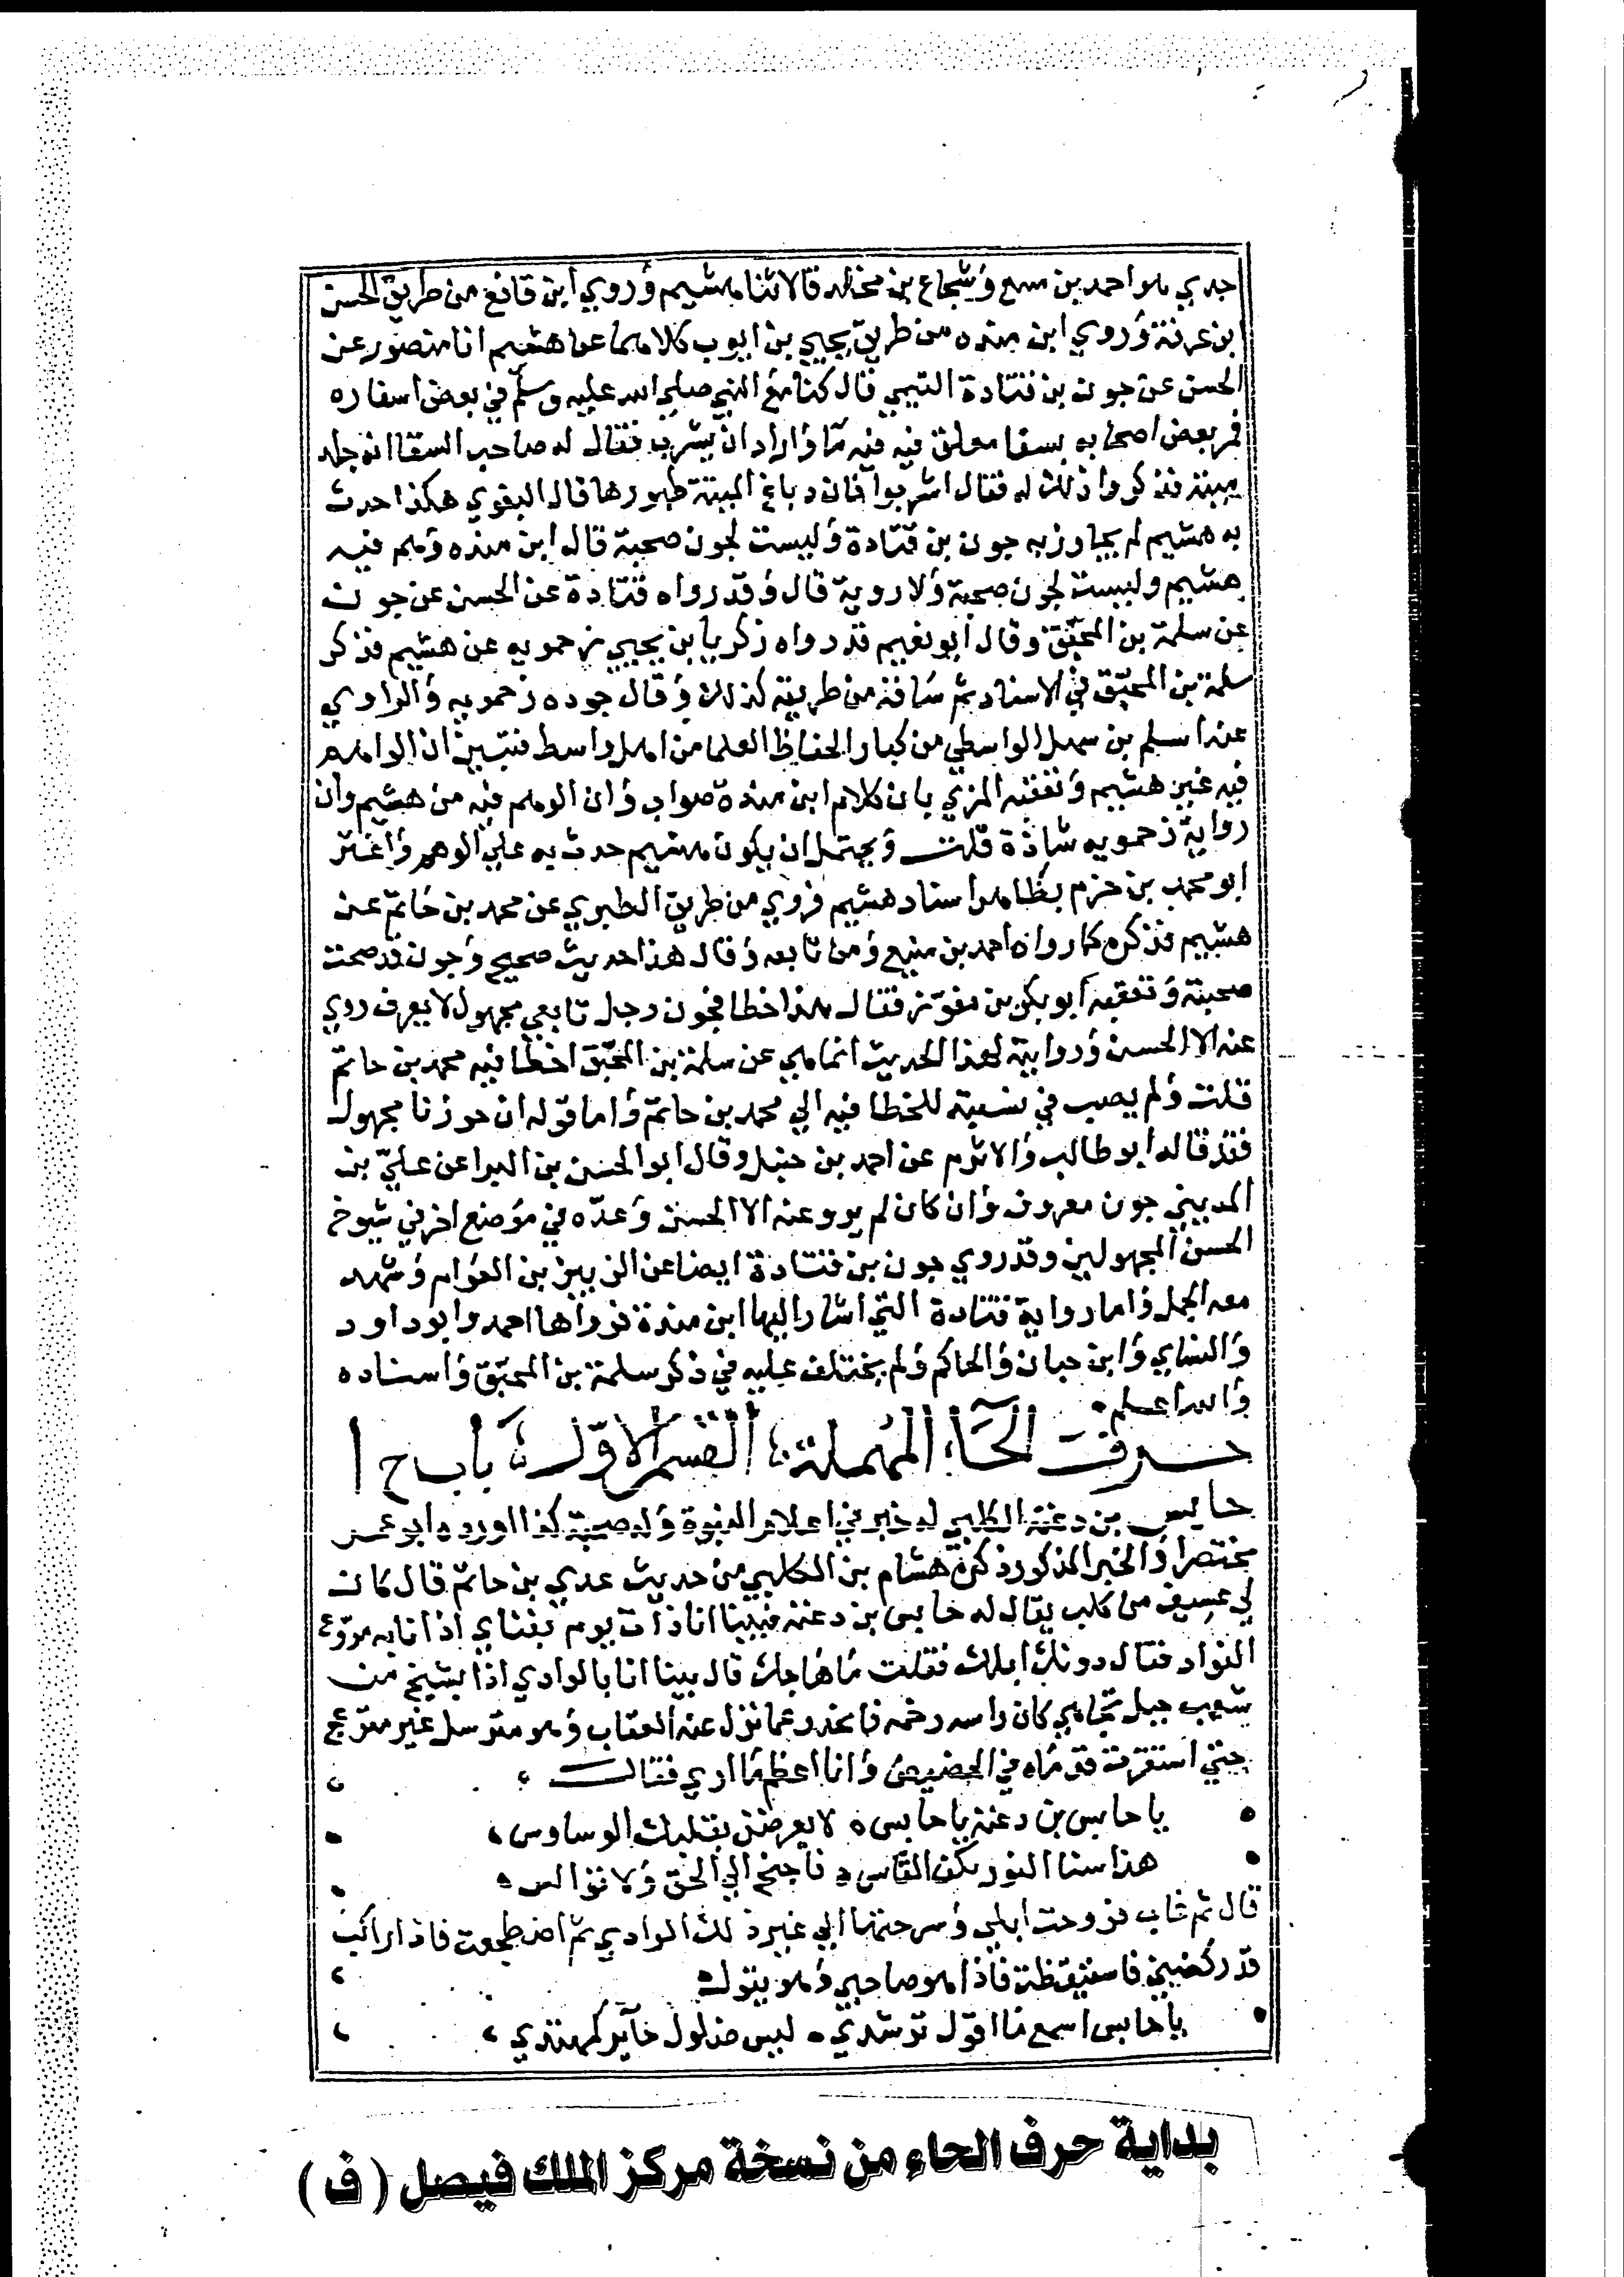 جدي هو احمد بن منيع وشجاع بن مخلد قالا ثنا هشيم وروي ابن قانع من طريق الحسن
ابن عرفة وروي ابن منده من طريق يحيي بن ايوب كلاهما عن هشيم انا منصور عن
الحسن عن جون بن قتادة التيمي قال كنا مع النبي صلي الله عليه وسلم في بعض اسفاره
فمر بعض اصحابه بسقا معلق فيه فيه ما وأراد ان يشرب فقال له صاحب السقا انه جلد
ميتة فذكروا ذلك له فقال اشربوا فان دباغ الميتة طهورها قال البغوي هكذا حدث
به هشيم لم يجاوز به جون بن قتادة وليست لجون صحبة قال ابن منده وهم فيه
هشيم وليست لجون صحبة ولا روية قال وقد رواه قتادة عن الحسن عن جون
عن سلمة بن المحبّق وقال أبو نعيم قد رواه زكريا بن يحيي زحمويه عن هشيم فذكر
سلمة بن المحبّق في الاسناد ثم ساقه من طريقه كذلك وقال جوده زحمويه والراوي
عنه اسلم بن سهل الواسطي من كبار الحفاظ العلما من اهل واسط فتبين ان الواهم
فيه غير هشيم وتعقبه المزي بان كلام ابن مندة صواب وان الوهم فيه من هشيم وان
رواية زحمويه شاذة قلت ويحتمل ان يكون هشيم حدث به علي الوهم وأغتر
ابو محمد بن حزم بظاهر اسناد هشيم فروي من طريق الطبري عن محمد بن حاتم عن
هشيم فذكره كما رواه احمد بن منيع ومن تابعه وقال هذا حديث صحيح وجون قد صحت
صحبته وتعقبه أبو بكر بن مفوّز فقال هذا خطا فجون رجل تابعي مجهول لا يعرف روي
عنه الا الحسن وروايته لهذا الحديث انما هي عن سلمة بن المحبّق اخطا فيه محمد بن حاتم
قلت ولم يصب في نسبته للخطا فيه الي محمد بن حاتم وأما قوله ان جونا مجهول
فقد قاله ابو طالب والاثرم عن احمد بن حنبل وقال ابو الحسن بن البرا عن عليّ بن
المديني جون معروف وان كان لم يرو عنه الا الحسن وعدّه في موضع اخر في شيوخ
الحسن المجهولين وقد روي جون بن قتادة ايضا عن الزبير بن العوام وشهد
معه الجمل وأما رواية قتادة التي اشار اليها ابن مندة فرواها احمد وابو داود
والنساي وابن حبان والحاكم ولم يختلف عليه في ذكر سلمة بن المحبّق واسناده
والله اعلم.
حرف الحاء المهملة القسم الاوّل باب ح ا
حابس بن دغنة الكلبي له خبر في اعلام النبوة وله صحبة كذا اورده ابو عمر
مختصرا والخبر المذكور ذكره هشام بن الكلبي من حديث عدي بن حاتم قال كان
لي عسيف من كلب يقال له حابس بن دغنة فبينا انا ذات يوم بفناي اذا انا به مروّع
الفواد فقال دونك ابلك فقلت ما هاجك قال بينا انا بالوادي اذا بشيخ من
شعب جبل تجاهي كان راسه رخمه فانحدر عما نزل عنه العقاب وهو مترسل غير منزعج
حتي استقرت قدماه في الحضيض وانا اعظم ما اري فقال
يا حابس بن دغنة يا حابس ه لا يعرضن بقلبك الوساوس
هذا سنا النور بكف القابس ه فاجنح الي الحق ولا توالس
قال ثم غاب فروحت ابلي وسرحتها الي غير ذلك الوادي ثم اضطجعت فاذا راكب
قد ركضني فاستيقظت فاذا هو صاحبي وهو يقول
يا حابس اسمع ما اقول ترشدي ه ليس ضلول حآير كمهتدي
بداية حرف الحاء من نسخة مركز الملك فيصل (ف)